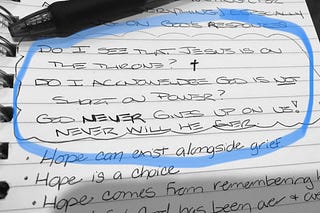 ESPECIALLY
ON GOD'S RESPONSES
DO I SEE THAT JESUS IS ON
THE THRONE? ✝
DO I ACKNOWLEDGE GOD IS NOT
SHORT ON POWER?
GOD NEVER GIVES UP ON US!
NEVER WILL HE EVER.
• Hope can exist alongside grief
• Hope is a choice
• Hope comes from remembering
has been